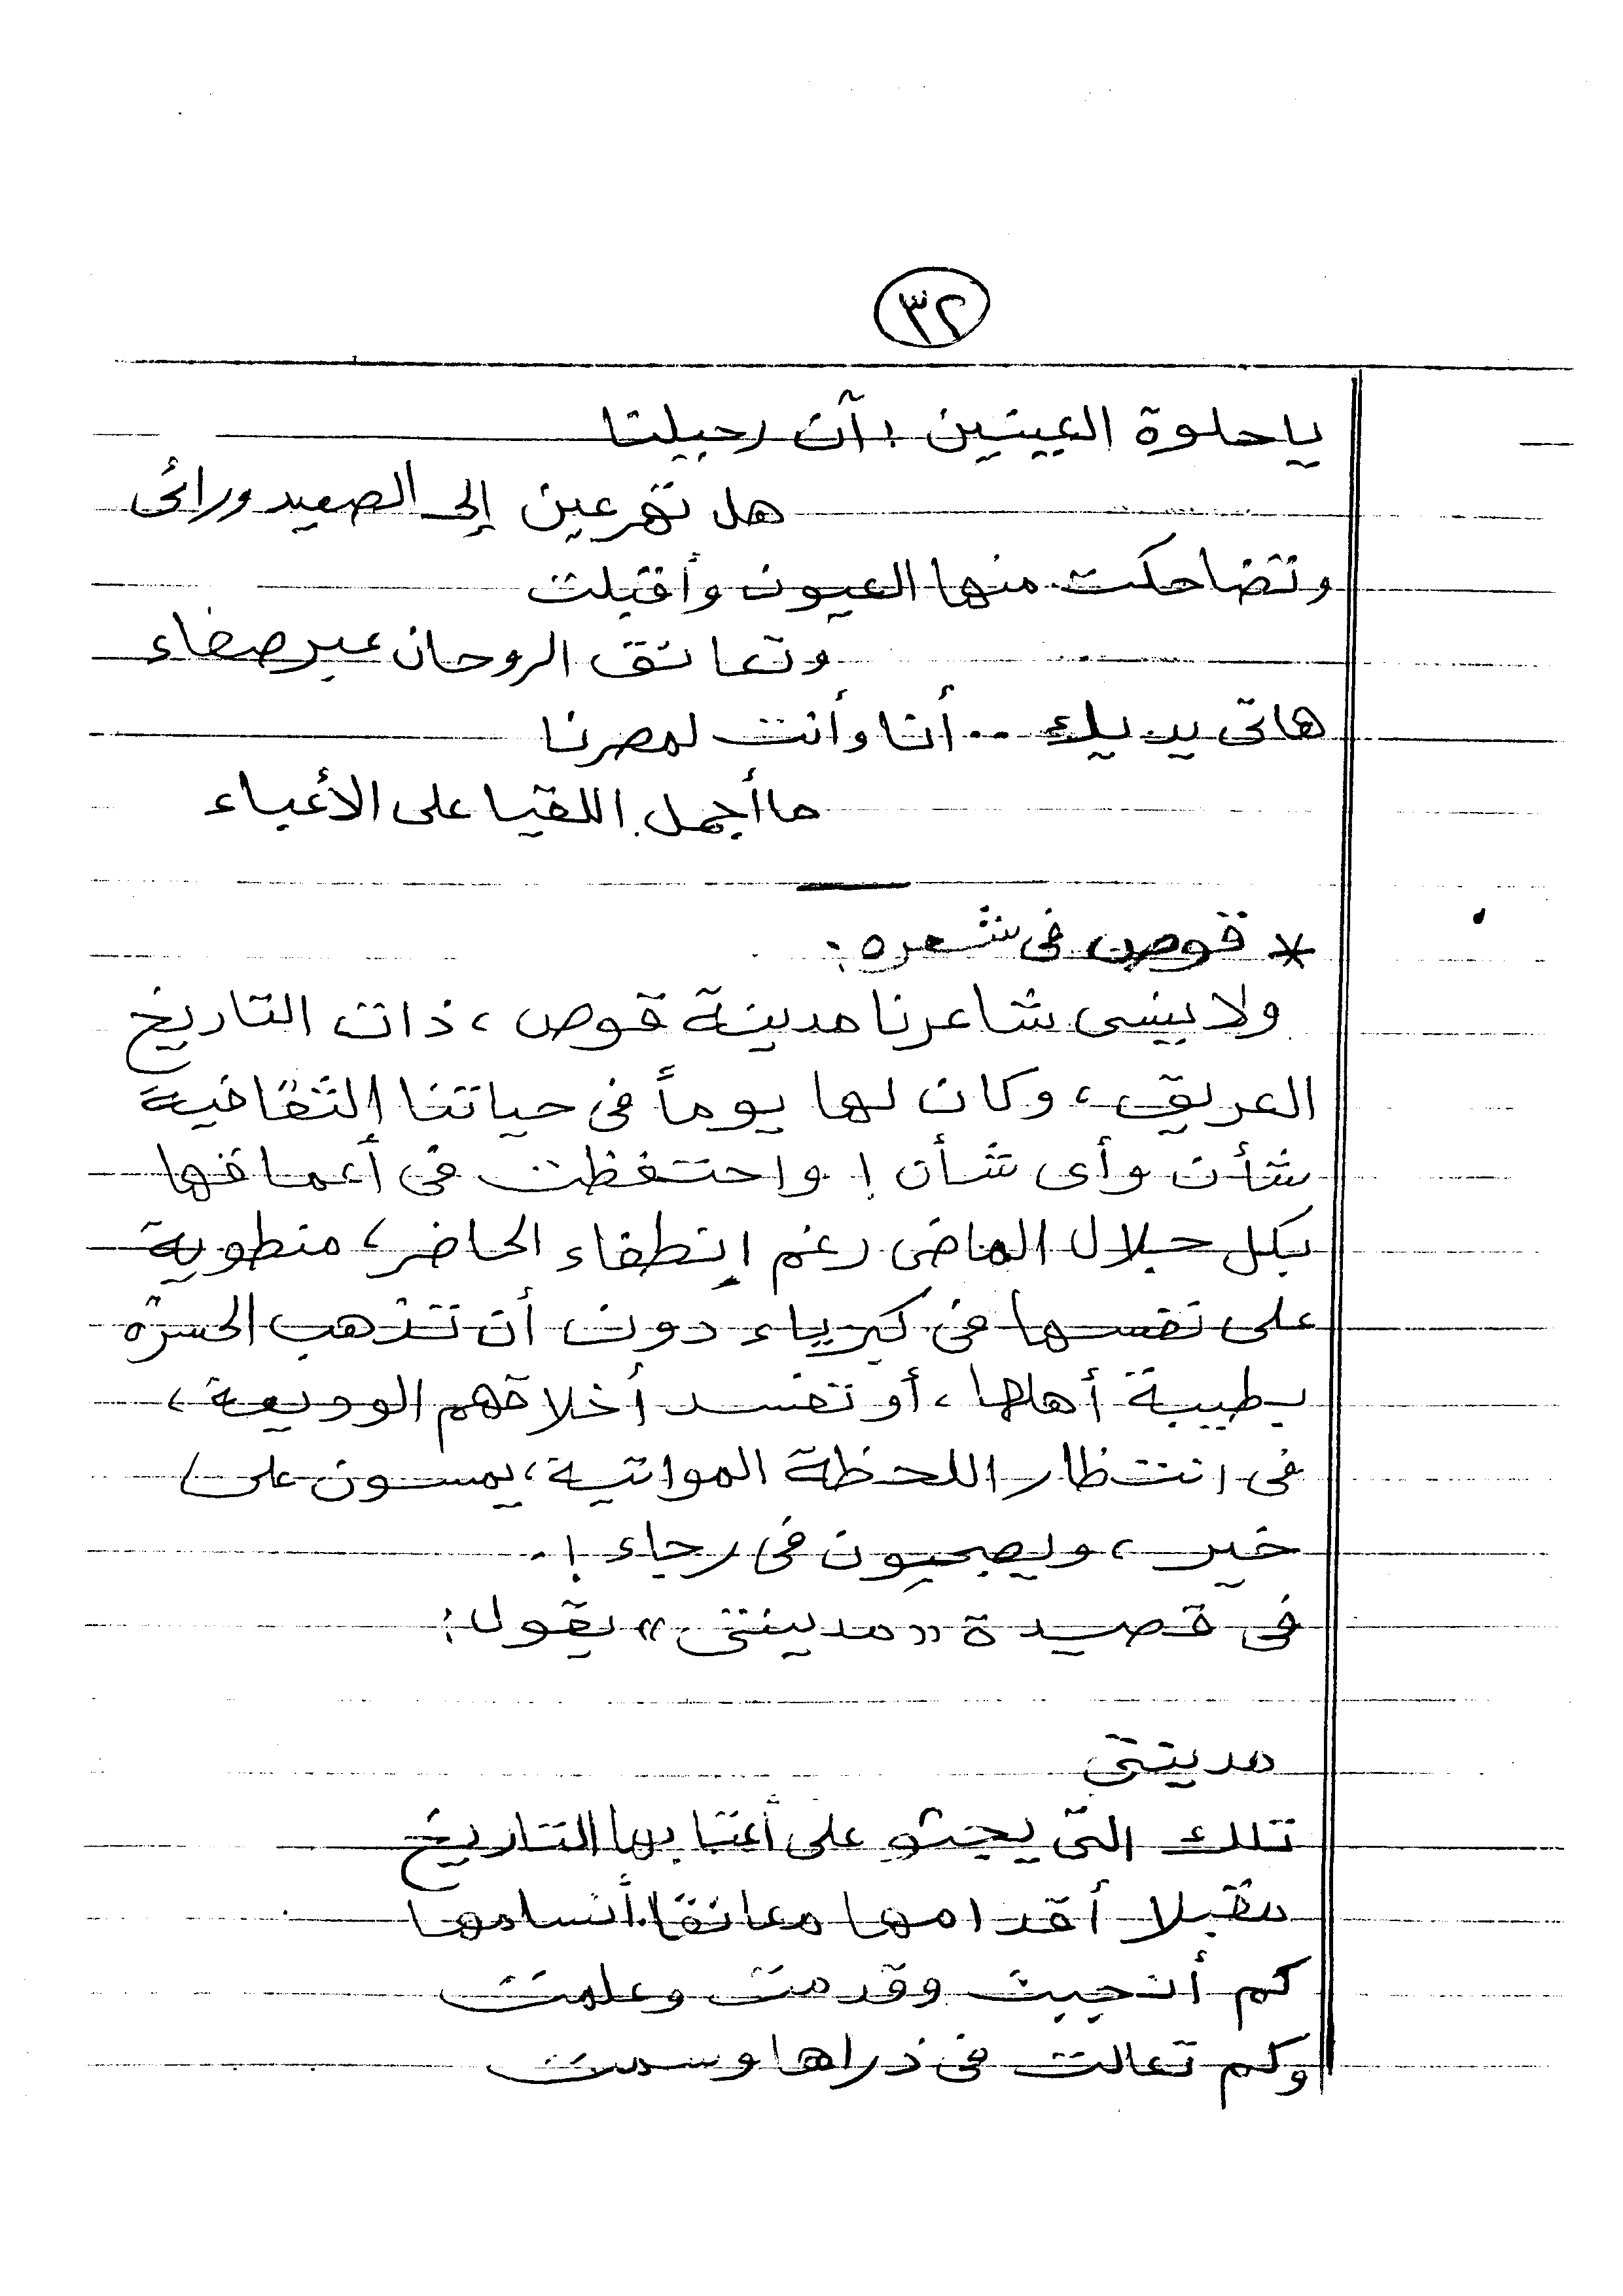 ٣٢
يا حلوة العينين ! آن رحيلنا
هل تهرعين إلى الصعيد ورائى
وتضاحكت منها العيون وأقبلت
وتعانق الروحان عبر صفاء
هاتى يديك .. أنا وأنت لمصرنا
ما أجمل اللقيا على الأعباء
* قوص فى شعره :
ولا ينسى شاعرنا مدينة قوص ، ذات التاريخ
العريق ، وكان لها يوماً فى حياتنا الثقافية
شأن وأى شأن ! واحتفظت فى أعماقها
بكل جلال الماضى رغم إنطفاء الحاضر ، منطوية
على نفسها فى كبرياء دون أن تذهب الحسرة
بطيبة أهلها ، أو تفسد أخلاقهم الوديعة ،
فى انتظار اللحظة المواتية ، يمسون على
خير ، ويصبحون فى رجاء ! .
فى قصيدة « مدينتى » يقول :
مدينتى
تلك التى يجثو على أعتابها التاريخ
مقبلا أقدامها معانقا أنسامها
كم أنجبت وقدمت وعلمت
وكم تعالت فى ذراها وسمت